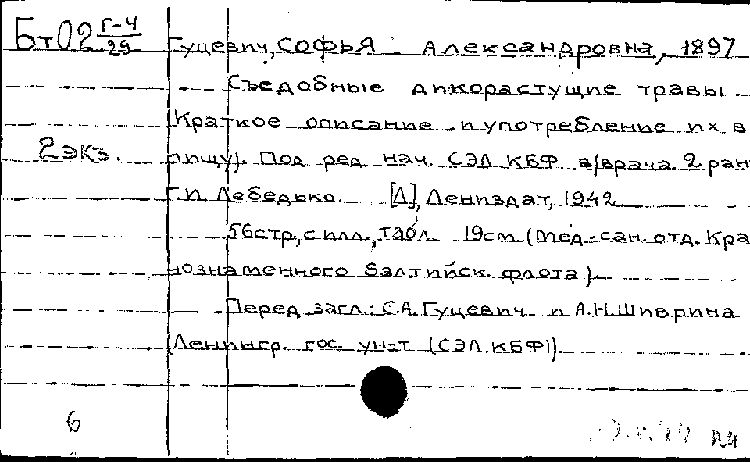 Бт02 Г-4/29
Гуцевич, СОФЬЯ Александровна, 1897
Съедобные дикорастущие травы
(Краткое описание и употребление их в
2 экз. пищу). Под ред нач. СЭЛ КБФ в/врача 2 ран
Г.И. Лебедько. [Л], Лениздат, 1942
56стр, с илл., табл. 19см (Мед-сан. отд. Кра
нознаменного Балтийск. флота)
Перед загл: С.А. Гуцевич и А.Н. Шиврина
(Ленингр. гос. ун-т (СЭЛ КБФ))
6